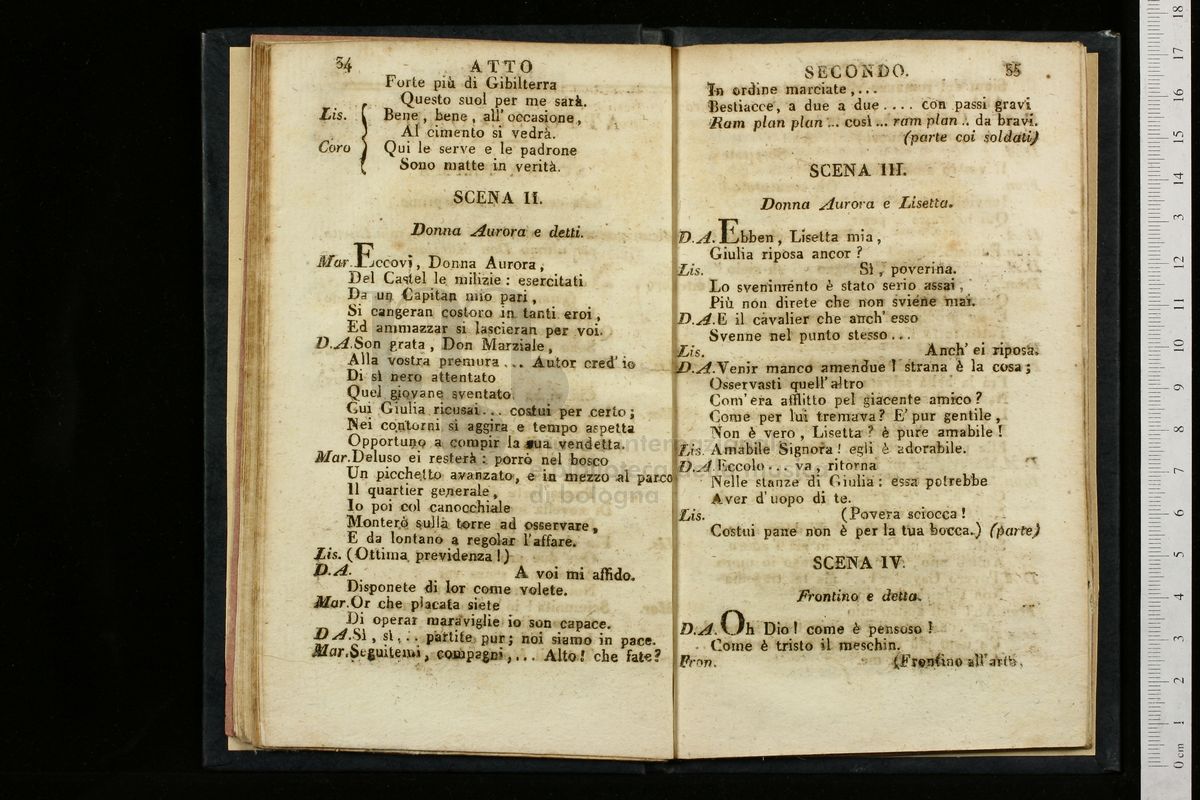 34
ATTO
Forte più di Gibilterra
Questo suol per me sarà.
Lis. Bene, bene, all' occasione,
Al cimento si vedrà.
Coro Qui le serve e le padrone
Sono matte in verità.
SCENA II.
Donna Aurora e detti.
Mar. Eccovi, Donna Aurora,
Del Castel le milizie: esercitati
Da un Capitan mio pari,
Si cangeran costoro in tanti eroi,
Ed ammazzar si lascieran per voi.
D.A. Son grata, Don Marziale,
Alla vostra premura... Autor cred' io
Di sì nero attentato
Quel giovane sventato
Cui Giulia ricusai... costui per certo;
Nei contorni si aggira e tempo aspetta
Opportuno a compir la sua vendetta.
Mar. Deluso ei resterà: porrò nel bosco
Un picchetto avanzato, e in mezzo al parco
Il quartier generale,
Io poi col canocchiale
Monterò sulla torre ad osservare,
E da lontano a regolar l'affare.
Lis. (Ottima previdenza!)
D.A. A voi mi affido.
Disponete di lor come volete.
Mar. Or che placata siete
Di operar maraviglie io son capace.
D A. Sì, sì... partite pur; noi siamo in pace.
Mar. Seguitemi, compagni,... Alto! che fate?
SECONDO. 35
In ordine marciate,...
Bestiacce, a due a due.... con passi gravi
Ram plan plan... così... ram plan.. da bravi.
(parte coi soldati)
SCENA III.
Donna Aurora e Lisetta.
D.A. Ebben, Lisetta mia,
Giulia riposa ancor?
Lis. Sì, poverina.
Lo svenimento è stato serio assai,
Più non direte che non sviene mai.
D.A. E il cavalier che anch' esso
Svenne nel punto stesso...
Lis. Anch' ei riposa.
D.A. Venir manco amendue! strana è la cosa;
Osservasti quell' altro
Com' era afflitto pel giacente amico?
Come per lui tremava? E' pur gentile,
Non è vero, Lisetta? è pure amabile!
Lis. Amabile Signora! egli è adorabile.
D.A. Eccolo... va, ritorna
Nelle stanze di Giulia: essa potrebbe
Aver d'uopo di te.
Lis. (Povera sciocca!
Costui pane non è per la tua bocca.) (parte)
SCENA IV.
Frontino e detta.
D.A. Oh Dio! come è pensoso!
Come è tristo il meschin.
Fron. (Frontino all'arte,